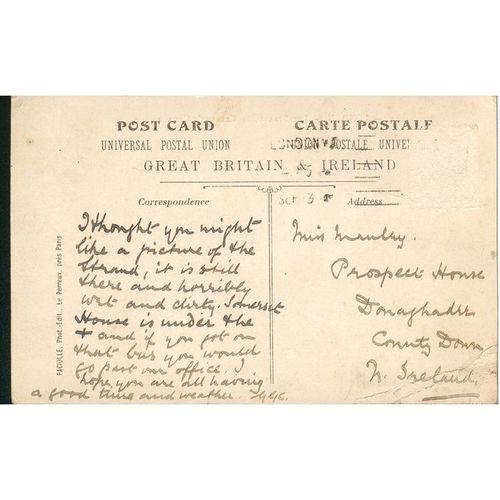 POST CARD
CARTE POSTALE
UNIVERSAL POSTAL UNION
UNION POSTALE UNIVER
GREAT BRITAIN & IRELAND
LONDON
Correspondence
Address
FACIOLLE, Phot.-Édit., Le Perreux, près Paris
I thought you might
like a picture of the
Strand, it is still
there and horribly
wet and dirty. Somerset
House is under the
+ and if you got on
that bus you would
go past our office. I
hope you are all having
a good time and weather.
Miss
Prospect House
Donaghadee
County Down
N. Ireland.